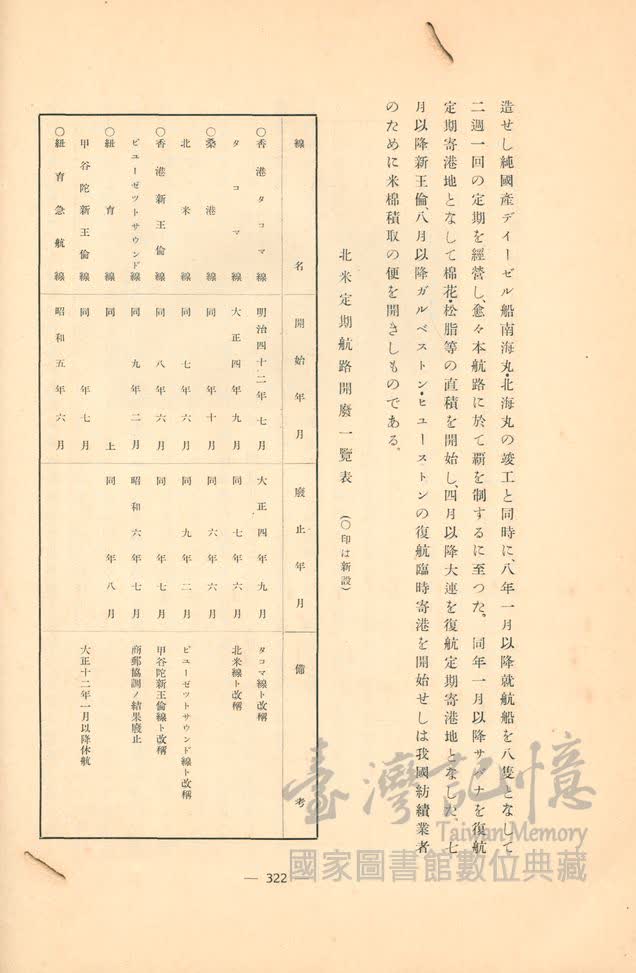 造せし純國產デイーゼル船南海丸・北海丸の竣工と同時に、八年一月以降就航船を八隻となして
二週一回の定期を經營し、愈々本航路に於て覇を制するに至つた。同年一月以降サバナを復航
定期寄港地となして棉花・松脂等の直積を開始し、四月以降大連を復航定期寄港地となした。七
月以降新王倫、八月以降ガルベストン・ヒユーストンの復航臨時寄港を開始せしは我國紡績業者
のために米棉積取の便を開きしものである。
北米定期航路開廢一覽表 (〇印は新設)
線名 開始年月 廢止年月 備考
〇香港タコマ線 明治四十二年七月 大正四年九月 タコマ線ト改稱
タコマ線 大正四年九月 同七年六月 北米線ト改稱
〇桑港線 同年十月 同六年六月
北米線 同七年六月 同九年二月 ピユーゼツトサウンド線ト改稱
〇香港新王倫線 同八年六月 同年七月 甲谷陀新王倫線ト改稱
ピユーゼツトサウンド線 同九年二月 昭和六年七月 商郵協調ノ結果廢止
〇紐育線 同上 同年八月
甲谷陀新王倫線 同年七月 大正十二年一月以降休航
〇紐育急航線 昭和五年六月
— 322 —
臺灣記憶
Taiwan Memory
國家圖書館數位典藏